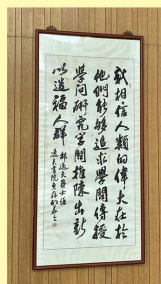 我相信人類的偉大在於
他們能夠追求學問傳授
學問研究學問推陳出新
以造福人群
邵逸夫爵士語